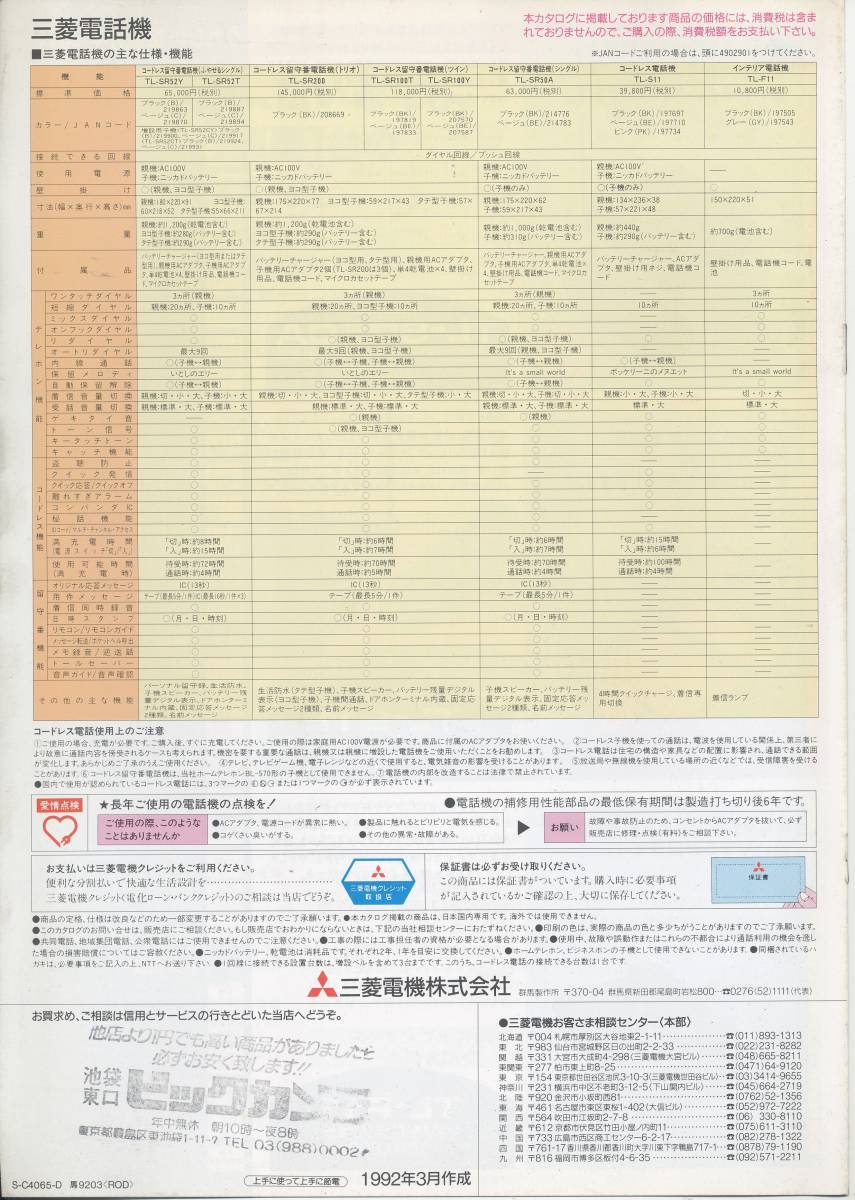 三菱電話機
本カタログに掲載しております商品の価格には、消費税は含ま
れておりませんので、ご購入の際、消費税額をお支払い下さい。
■三菱電話機の主な仕様・機能
※JANコードご利用の場合は、頭に4902901をつけてください。
機能 コードレス留守番電話機(ふやせるシングル) コードレス留守番電話機(トリオ) コードレス留守番電話機(ツイン) コードレス留守番電話機(シングル) コードレス電話機 インテリア電話機
TL-SR52Y TL-SR52T TL-SR200 TL-SR100T TL-SR100Y TL-SR50A TL-S11 TL-F11
標準価格 65,000円(税別) 145,000円(税別) 118,000円(税別) 63,000円(税別) 39,800円(税別) 10,800円(税別)
カラー/JANコード
ブラック(B)/219863 ベージュ(C)/219870
ブラック(B)/219887 ベージュ(C)/219894
ブラック(BK)/208669
ブラック(BK)/197819 ベージュ(BE)/197833
ブラック(BK)/207570 ベージュ(BE)/207587
ブラック(BK)/214776 ベージュ(BE)/214783
ブラック(BK)/197697 ベージュ(BE)/197710 ピンク(PK)/197734
ブラック(BK)/197505 グレー(GY)/197543
接続できる回線 ダイヤル回線/プッシュ回線
使用電源 親機:AC100V 子機:ニッカドバッテリー 親機:AC100V 子機:ニッカドバッテリー 親機:AC100V 子機:ニッカドバッテリー 親機:AC100V 子機:ニッカドバッテリー
壁掛け ○(親機、ヨコ型子機) ○(親機、ヨコ型子機) ○(子機のみ) ○(子機のみ) ○
寸法(幅×奥行×高さ)mm
親機:180×220×91 ヨコ型子機:60×218×52 タテ型子機:55×66×211
親機:175×220×77 ヨコ型子機:59×217×43 タテ型子機:57×67×214
親機:175×220×62 子機:59×217×43
親機:134×236×38 子機:57×221×48
150×220×51
重量
親機:約1,200g(乾電池含む) ヨコ型子機:約280g(バッテリー含む) タテ型子機:約290g(バッテリー含む)
親機:約1,200g(乾電池含む) ヨコ型子機:約290g(バッテリー含む) タテ型子機:約290g(バッテリー含む)
親機:約1,000g(乾電池含む) 子機:約310g(バッテリー含む)
親機:約440g 子機:約290g(バッテリー含む)
約700g(電池含む)
付属品
バッテリーチャージャー(ヨコ型用、タテ型用)、親機用ACアダプタ、子機用ACアダプタ2個(TL-SR200は3個)、単4乾電池×4、壁掛け用品、電話機コード、マイクロカセットテープ
バッテリーチャージャー、ACアダプタ、壁掛け用ネジ、電話機コード
壁掛け用品、電話機コード、電池
テレホン機能
ワンタッチダイヤル 3ヵ所(親機) 3ヵ所(親機) 3ヵ所(親機) 3ヵ所
短縮ダイヤル 親機:20ヵ所、子機:10ヵ所 親機:20ヵ所、ヨコ型子機:10ヵ所 親機:20ヵ所、子機:10ヵ所 10ヵ所 10ヵ所
ミックスダイヤル
オンフックダイヤル
リダイヤル ○ ○(親機、ヨコ型子機) ○(親機、ヨコ型子機) ○ ○
オートリダイヤル 最大9回 最大9回(親機、ヨコ型子機) 最大9回(親機、ヨコ型子機)
内線通話 ○(子機↔親機) ○(子機↔子機、子機↔親機) ○(子機↔親機) ○(子機↔親機)
保留メロディ いとしのエリー いとしのエリー It's a small world ボッケリーニのメヌエット It's a small world
自動保留解除 ○(子機↔親機) ○(子機↔子機、子機↔親機) ○(子機↔親機)
着信音量切換 親機:切・小・大、子機:小・大 親機:切・小・大、ヨコ型子機:切・小・大、タテ型子機:小・大 親機:切・小・大、子機:切・小・大 親機:小・大、子機:小・大 切・小・大
受話音量切換 親機:標準・大、子機:標準・大 親機:標準・大、子機:標準・大 親機:標準・大、子機:標準・大 標準・大 標準・大
ゲキタイ音 ○ ○(親機) ○(親機)
トーン信号 ○ ○(親機、ヨコ型子機)
キータッチトーン
キャッチ機能
コードレス機能
盗聴防止
クイック発信
クイック応答/クイックオフ
離れすぎアラーム
コンパンダIC
秘話機能
IDコード/マルチ・チャンネル・アクセス
満充電時間(電源スイッチ「切」/「入」) 「切」時:約8時間 「入」時:約15時間 「切」時:約6時間 「入」時:約7時間 「切」時:約6時間 「入」時:約7時間 「切」時:約15時間 「入」時:約16時間
使用可能時間(満充電時) 待受時:約72時間 通話時:約4時間 待受時:約70時間 通話時:約5時間 待受時:約70時間 通話時:約4時間 待受時:約100時間 通話時:約4時間
留守番機能
オリジナル応答メッセージ IC(13秒) IC(13秒) IC(13秒)
用件メッセージ テープ(最長5分/1件)IC(最長16秒/1件×3) テープ(最長5分/1件) テープ(最長5分/1件)
着信同時録音
日時スタンプ ○(月・日・時刻) ○(月・日・時刻) ○(月・日・時刻)
リモコン/リモコンガイド
メッセージ転送/ポケットベル呼出
メモ録音/逆送話
トールセーバー
音声ガイド/音声確認
その他の主な機能
パーソナル留守録、生活防水、子機スピーカー、バッテリー残量デジタル表示、ドアホンターミナル内蔵、固定応答メッセージ2種類、名前メッセージ
生活防水(タテ型子機)、子機スピーカー、バッテリー残量デジタル表示(ヨコ型子機)、子機間通話、ドアホンターミナル内蔵、固定応答メッセージ2種類、名前メッセージ
子機スピーカー、バッテリー残量デジタル表示、固定応答メッセージ2種類、名前メッセージ
4時間クイックチャージ、着信専用切換
着信ランプ
コードレス電話使用上のご注意
①ご使用の場合、充電が必要です。ご購入後、すぐに充電してください。ご使用の際は家庭用AC100V電源が必要です。商品に付属のACアダプタをお使いください。 ②コードレス子機を使っての通話は、電波を使用している関係上、第三者に
より故意に通話内容を傍受されるケースも考えられます。機密を要する重要な通話は、親機又は親機に増設した電話機をご使用いただくことをお勧めします。 ③コードレス電話は住宅の構造や家具などの配置に影響され、通話できる範囲
が変化します。あらかじめご了承のうえご使用ください。 ④テレビ、テレビゲーム機、電子レンジなどの近くで使用すると、電気雑音の影響を受けることがあります。 ⑤放送局や無線機を使用している場所の近くなどでは、受信障害を受ける
ことがあります。⑥コードレス留守番電話機は、当社ホームテレホンBL-570形の子機として使用できません。⑦電話機の内部を改造することは法律で禁止されています。
愛情点検
★長年ご使用の電話機の点検を!
●電話機の補修用性能部品の最低保有期間は製造打ち切り後6年です。
ご使用の際、このような
ことはありませんか
●ACアダプタ、電源コードが異常に熱い。 ●製品に触れるとビリビリと電気を感じる。
●コゲくさい臭いがする。 ●その他の異常・故障がある。
お願い
故障や事故防止のため、コンセントからACアダプタを抜いて、必ず
販売店に修理・点検(有料)をご相談下さい。
お支払いは三菱電機クレジットをご利用ください。
便利な分割払いで快適な生活設計を
三菱電機クレジット〈電化ローン・バンククレジット〉のご相談は当店でどうぞ。
三菱電機クレジット
取扱店
保証書は必ずお受け取りください。
この商品には保証書がついています。購入時に必要事項
が記入されているかご確認の上、大切に保存してください。
保証書
●商品の定格、仕様は改良などのため一部変更することがありますのでご了承願います。●本カタログ掲載の商品は、日本国内専用です。海外では使用できません。
●このカタログのお問い合せは、販売店にご相談ください。もし販売店でおわかりにならないときは、下記の当社相談センターにおたずねください。●印刷の色は、実際の商品の色と多少ちがうことがありますのでご了承願います。
●共同電話、地域集団電話、公衆電話にはご使用できませんのでご注意ください。●工事の際には工事担任者の資格が必要となる場合があります。●使用中、故障や誤動作またはこれらの不都合により通話利用の機会を逸し
た場合の損害賠償についてはご容赦ください。●ニッカドバッテリー、乾電池は消耗品です。それぞれ2年、1年を目安に交換してください。●ホームテレホン、ビジネスホンの子機として使用できないことがあります。●同梱されているハ
ガキは、必要事項をご記入の上、NTTへお送り下さい。●1回線に接続できる設置台数は、増設ベルを含めて3台までです。このうち、コードレス電話の接続できる台数は1台です。
三菱電機株式会社 群馬製作所 〒370-04 群馬県新田郡尾島町岩松800…☎0276(52)1111(代表)
お買求め、ご相談は信用とサービスの行きとどいた当店へどうぞ。
他店より1円でも高い商品がありましたら
必ずお安く致します!!
池袋
東口
ビックカメラ
年中無休 朝10時〜夜8時
東京都豊島区東池袋1-11-7 TEL 03(988)0002
●三菱電機お客さま相談センター〈本部〉
北海道 〒004 札幌市厚別区大谷地東2-1-11 ☎(011)893-1313
東北 〒983 仙台市宮城野区日の出町2-2-33 ☎(022)231-8282
関越 〒331 大宮市大成町4-298(三菱電機大宮ビル) ☎(048)665-8211
東関東 〒277 柏市東上町8-25 ☎(0471)64-9120
東京 〒154 東京都世田谷区池尻3-10-3(三菱電機世田谷ビル) ☎(03)3414-9655
神奈川 〒231 横浜市中区不老町3-12-5(下山関内ビル) ☎(045)664-2719
北陸 〒920 金沢市小坂町西81 ☎(0762)52-1356
東海 〒461 名古屋市東区東桜1-402(大信ビル) ☎(052)972-7222
関西 〒564 吹田市江坂町2-7-8 ☎(06)330-8110
近畿 〒612 京都市伏見区竹田小屋ノ内町11 ☎(075)611-3110
中国 〒733 広島市西区商工センター6-2-17 ☎(082)278-1322
四国 〒761-17 香川県香川郡香川町大字川東下字鴨島717-1 ☎(0878)79-1190
九州 〒816 福岡市博多区板付4-6-35 ☎(092)571-2211
S-C4065-D 馬9203〈ROD〉
上手に使って上手に節電
1992年3月作成